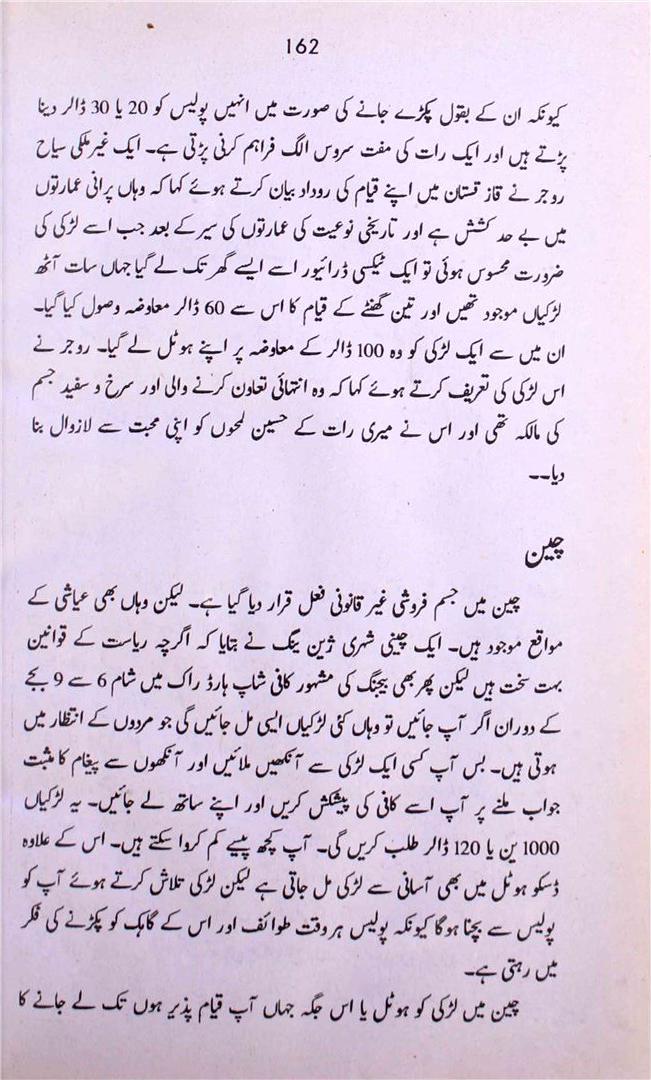 162
کیونکہ ان کے بقول پکڑے جانے کی صورت میں انہیں پولیس کو 20 یا 30 ڈالر دینا
پڑتے ہیں اور ایک رات کی مفت سروس الگ فراہم کرنی پڑتی ہے۔ ایک غیر ملکی سیاح
روجر نے قازقستان میں اپنے قیام کی روداد بیان کرتے ہوئے کہا کہ وہاں پرانی عمارتوں
میں بے حد کشش ہے اور تاریخی نوعیت کی عمارتوں کی سیر کے بعد جب اسے لڑکی کی
ضرورت محسوس ہوئی تو ایک ٹیکسی ڈرائیور اسے ایسے گھر تک لے گیا جہاں سات آٹھ
لڑکیاں موجود تھیں اور تین گھنٹے کے قیام کا اس سے 60 ڈالر معاوضہ وصول کیا گیا۔
ان میں سے ایک لڑکی کو وہ 100 ڈالر کے معاوضہ پر اپنے ہوٹل لے گیا۔ روجر نے
اس لڑکی کی تعریف کرتے ہوئے کہا کہ وہ انتہائی تعاون کرنے والی اور سرخ و سفید جسم
کی مالکہ تھی اور اس نے میری رات کے حسین لمحوں کو اپنی محبت سے لازوال بنا
دیا۔۔
چین
چین میں جسم فروشی غیر قانونی فعل قرار دیا گیا ہے۔ لیکن وہاں بھی عیاشی کے
مواقع موجود ہیں۔ ایک چینی شہری ژین ینگ نے بتایا کہ اگرچہ ریاست کے قوانین
بہت سخت ہیں لیکن پھر بھی بیجنگ کی مشہور کافی شاپ ہارڈ راک میں شام 6 سے 9 بجے
کے دوران اگر آپ جائیں تو وہاں کئی لڑکیاں ایسی مل جائیں گی جو مردوں کے انتظار میں
ہوتی ہیں۔ بس آپ کسی ایک لڑکی سے آنکھیں ملائیں اور آنکھوں سے پیغام کا مثبت
جواب ملنے پر آپ اسے کافی کی پیشکش کریں اور اپنے ساتھ لے جائیں۔ یہ لڑکیاں
1000 ین یا 120 ڈالر طلب کریں گی۔ آپ کچھ پیسے کم کروا سکتے ہیں۔ اس کے علاوہ
ڈسکو ہوٹل میں بھی آسانی سے لڑکی مل جاتی ہے لیکن لڑکی تلاش کرتے ہوئے آپ کو
پولیس سے بچنا ہوگا کیونکہ پولیس ہر وقت طوائف اور اس کے گاہک کو پکڑنے کی فکر
میں رہتی ہے۔
چین میں لڑکی کو ہوٹل یا اس جگہ جہاں آپ قیام پذیر ہوں تک لے جانے کا